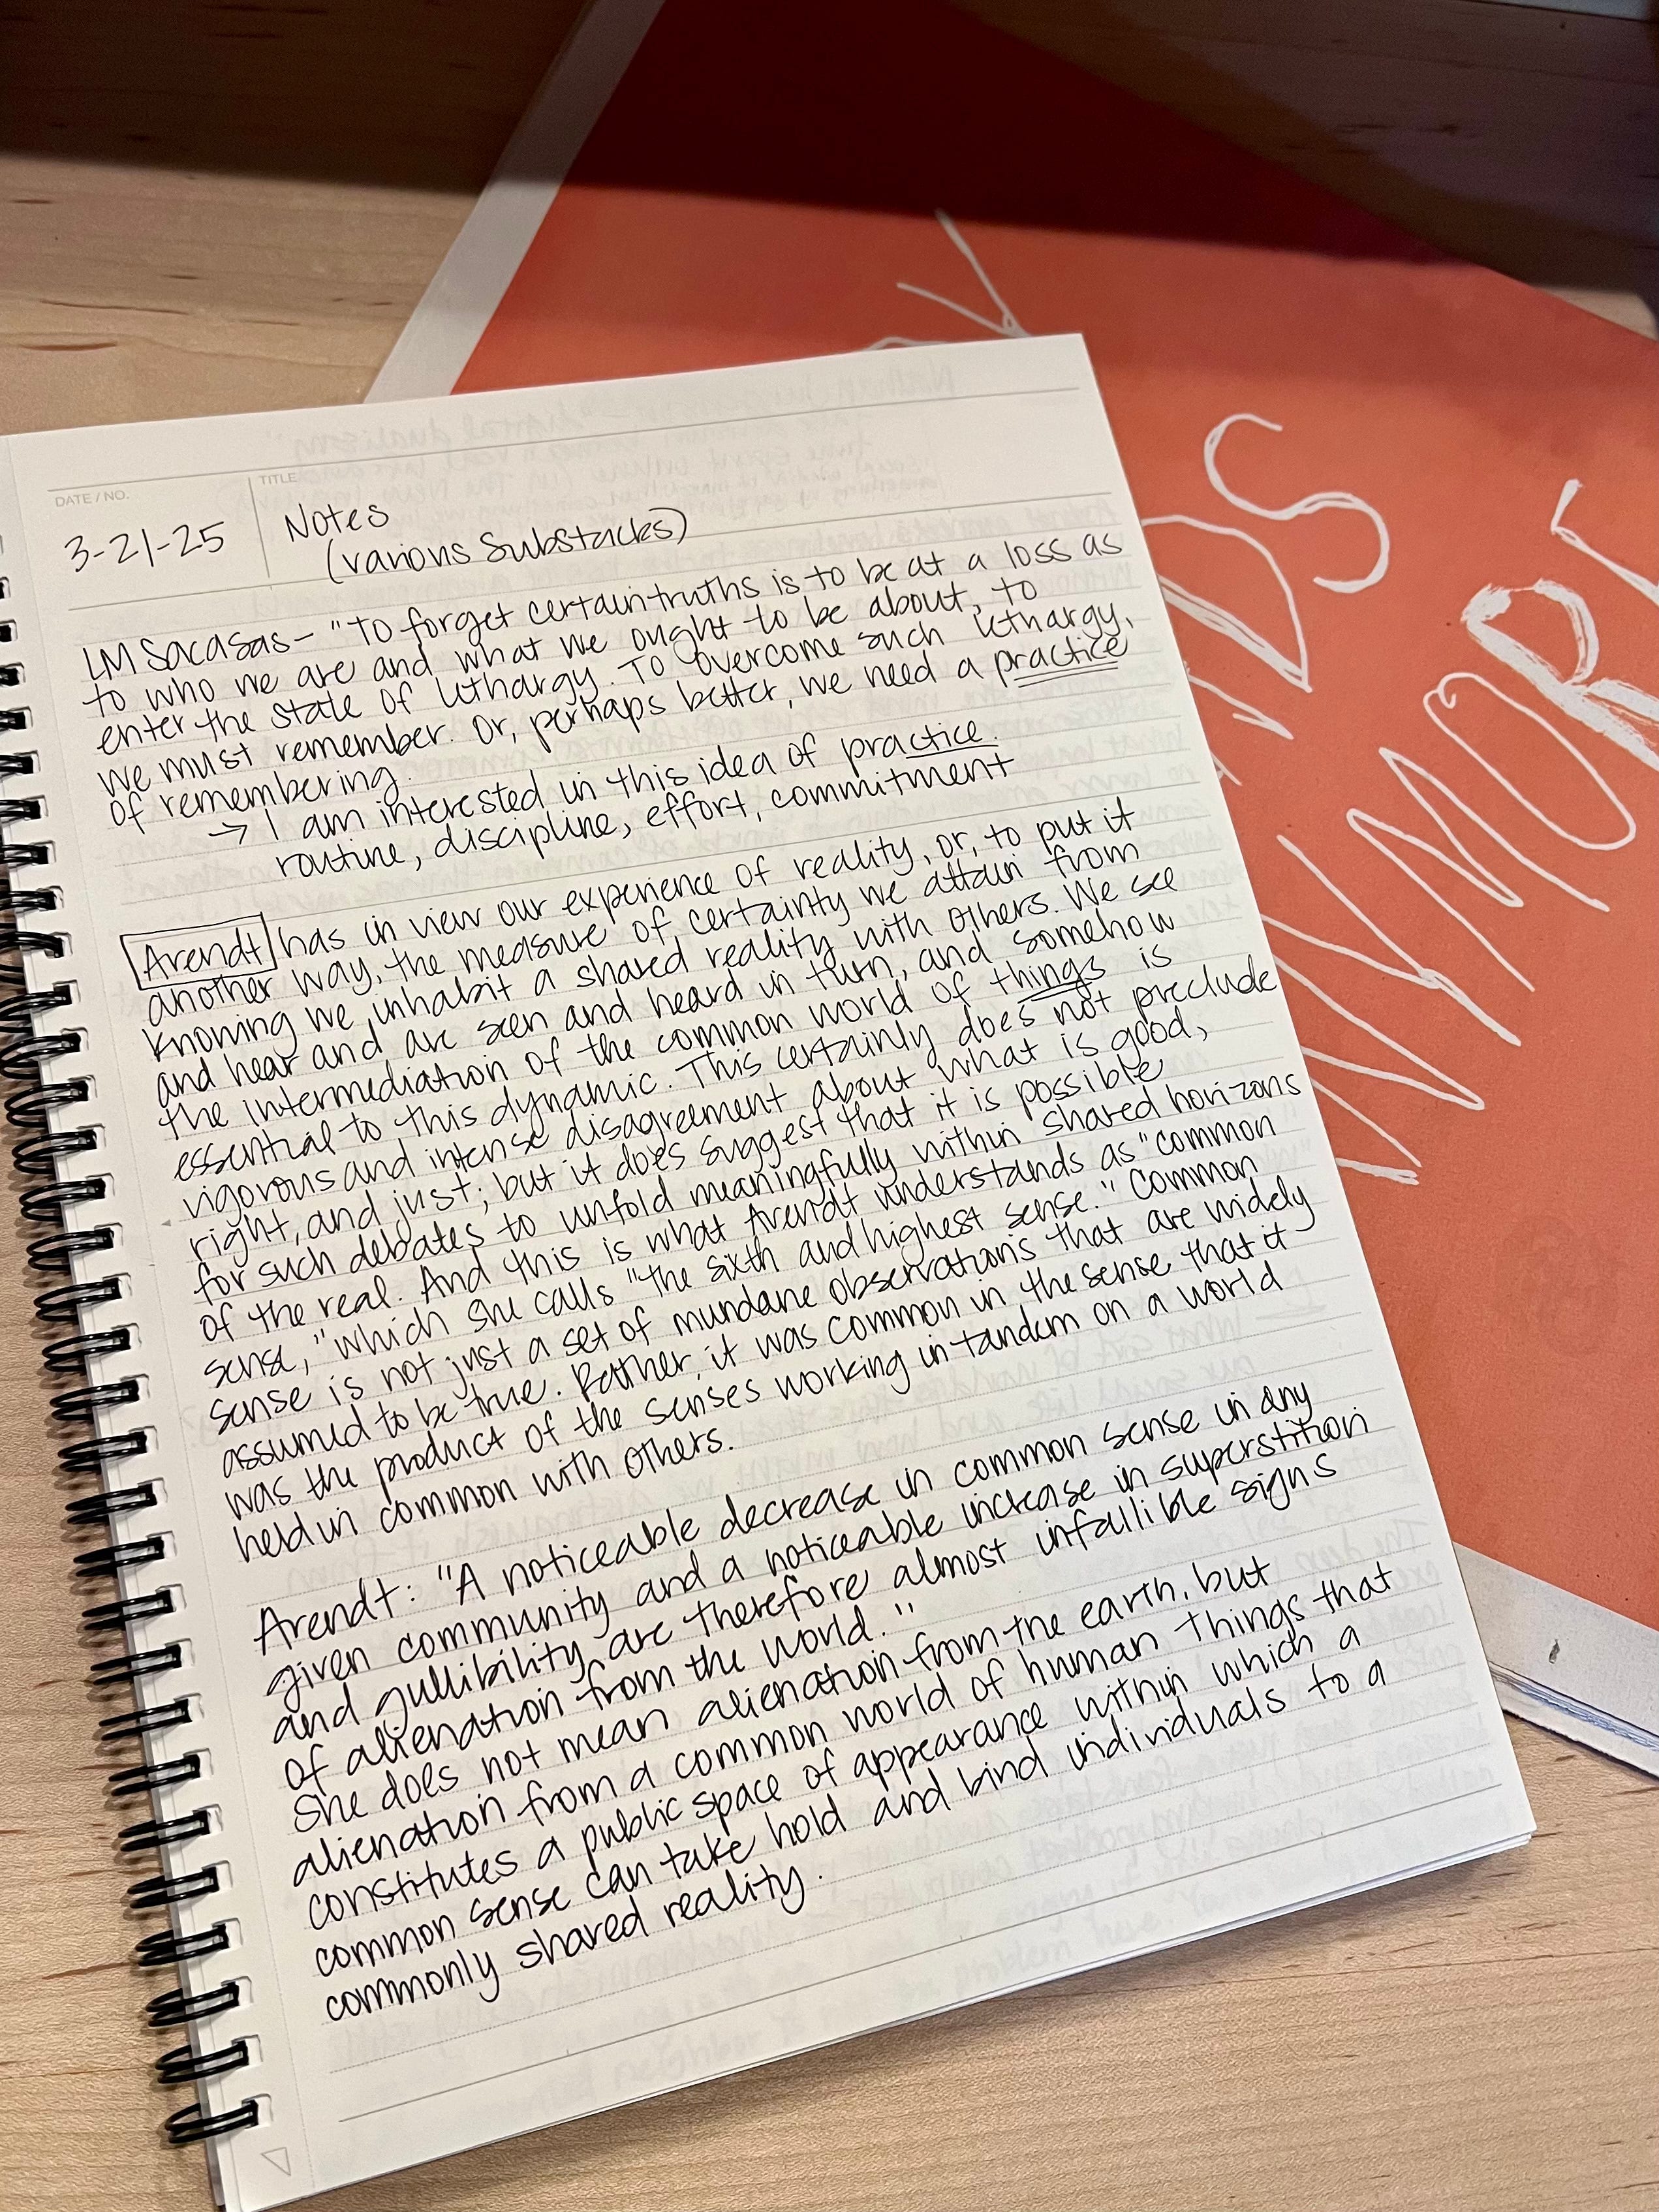 DATE / NO.
TITLE
3-21-25
Notes
(various Substacks)
LM Sacasas - "To forget certain truths is to be at a loss as
to who we are and what we ought to be about, to
enter the state of lethargy. To overcome such lethargy,
we must remember. Or, perhaps better, we need a practice
of remembering.
→ I am interested in this idea of practice.
routine, discipline, effort, commitment
Arendt has in view our experience of reality, or, to put it
another way, the measure of certainty we attain from
knowing we inhabit a shared reality with others. We see
and hear and are seen and heard in turn, and somehow
the intermediation of the common world of things is
essential to this dynamic. This certainly does not preclude
vigorous and intense disagreement about what is good,
right, and just; but it does suggest that it is possible
for such debates to unfold meaningfully within shared horizons
of the real. And this is what Arendt understands as "common
sense," which she calls "the sixth and highest sense." Common
sense is not just a set of mundane observations that are widely
assumed to be true. Rather, it was common in the sense that it
was the product of the senses working in tandem on a world
held in common with others.
Arendt: "A noticeable decrease in common sense in any
given community and a noticeable increase in superstition
and gullibility are therefore almost infallible signs
of alienation from the world."
She does not mean alienation from the earth, but
alienation from a common world of human things that
constitutes a public space of appearance within which a
common sense can take hold and bind individuals to a
commonly shared reality.